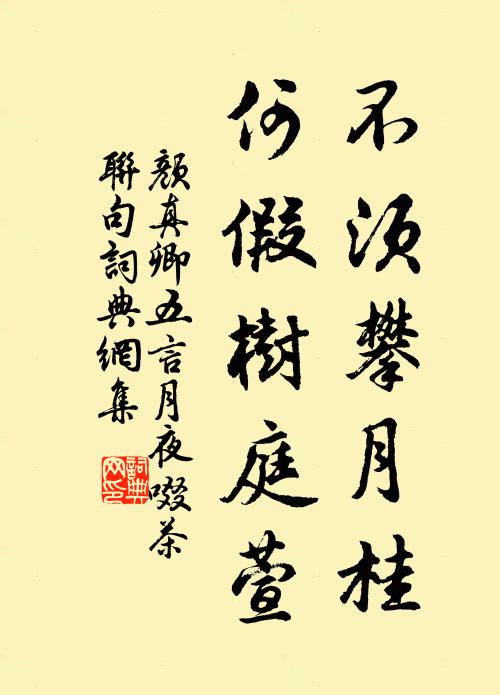 不須攀月桂
何假樹庭萱
顏真卿五言月夜啜茶
聯句詞典網集
詞典網印